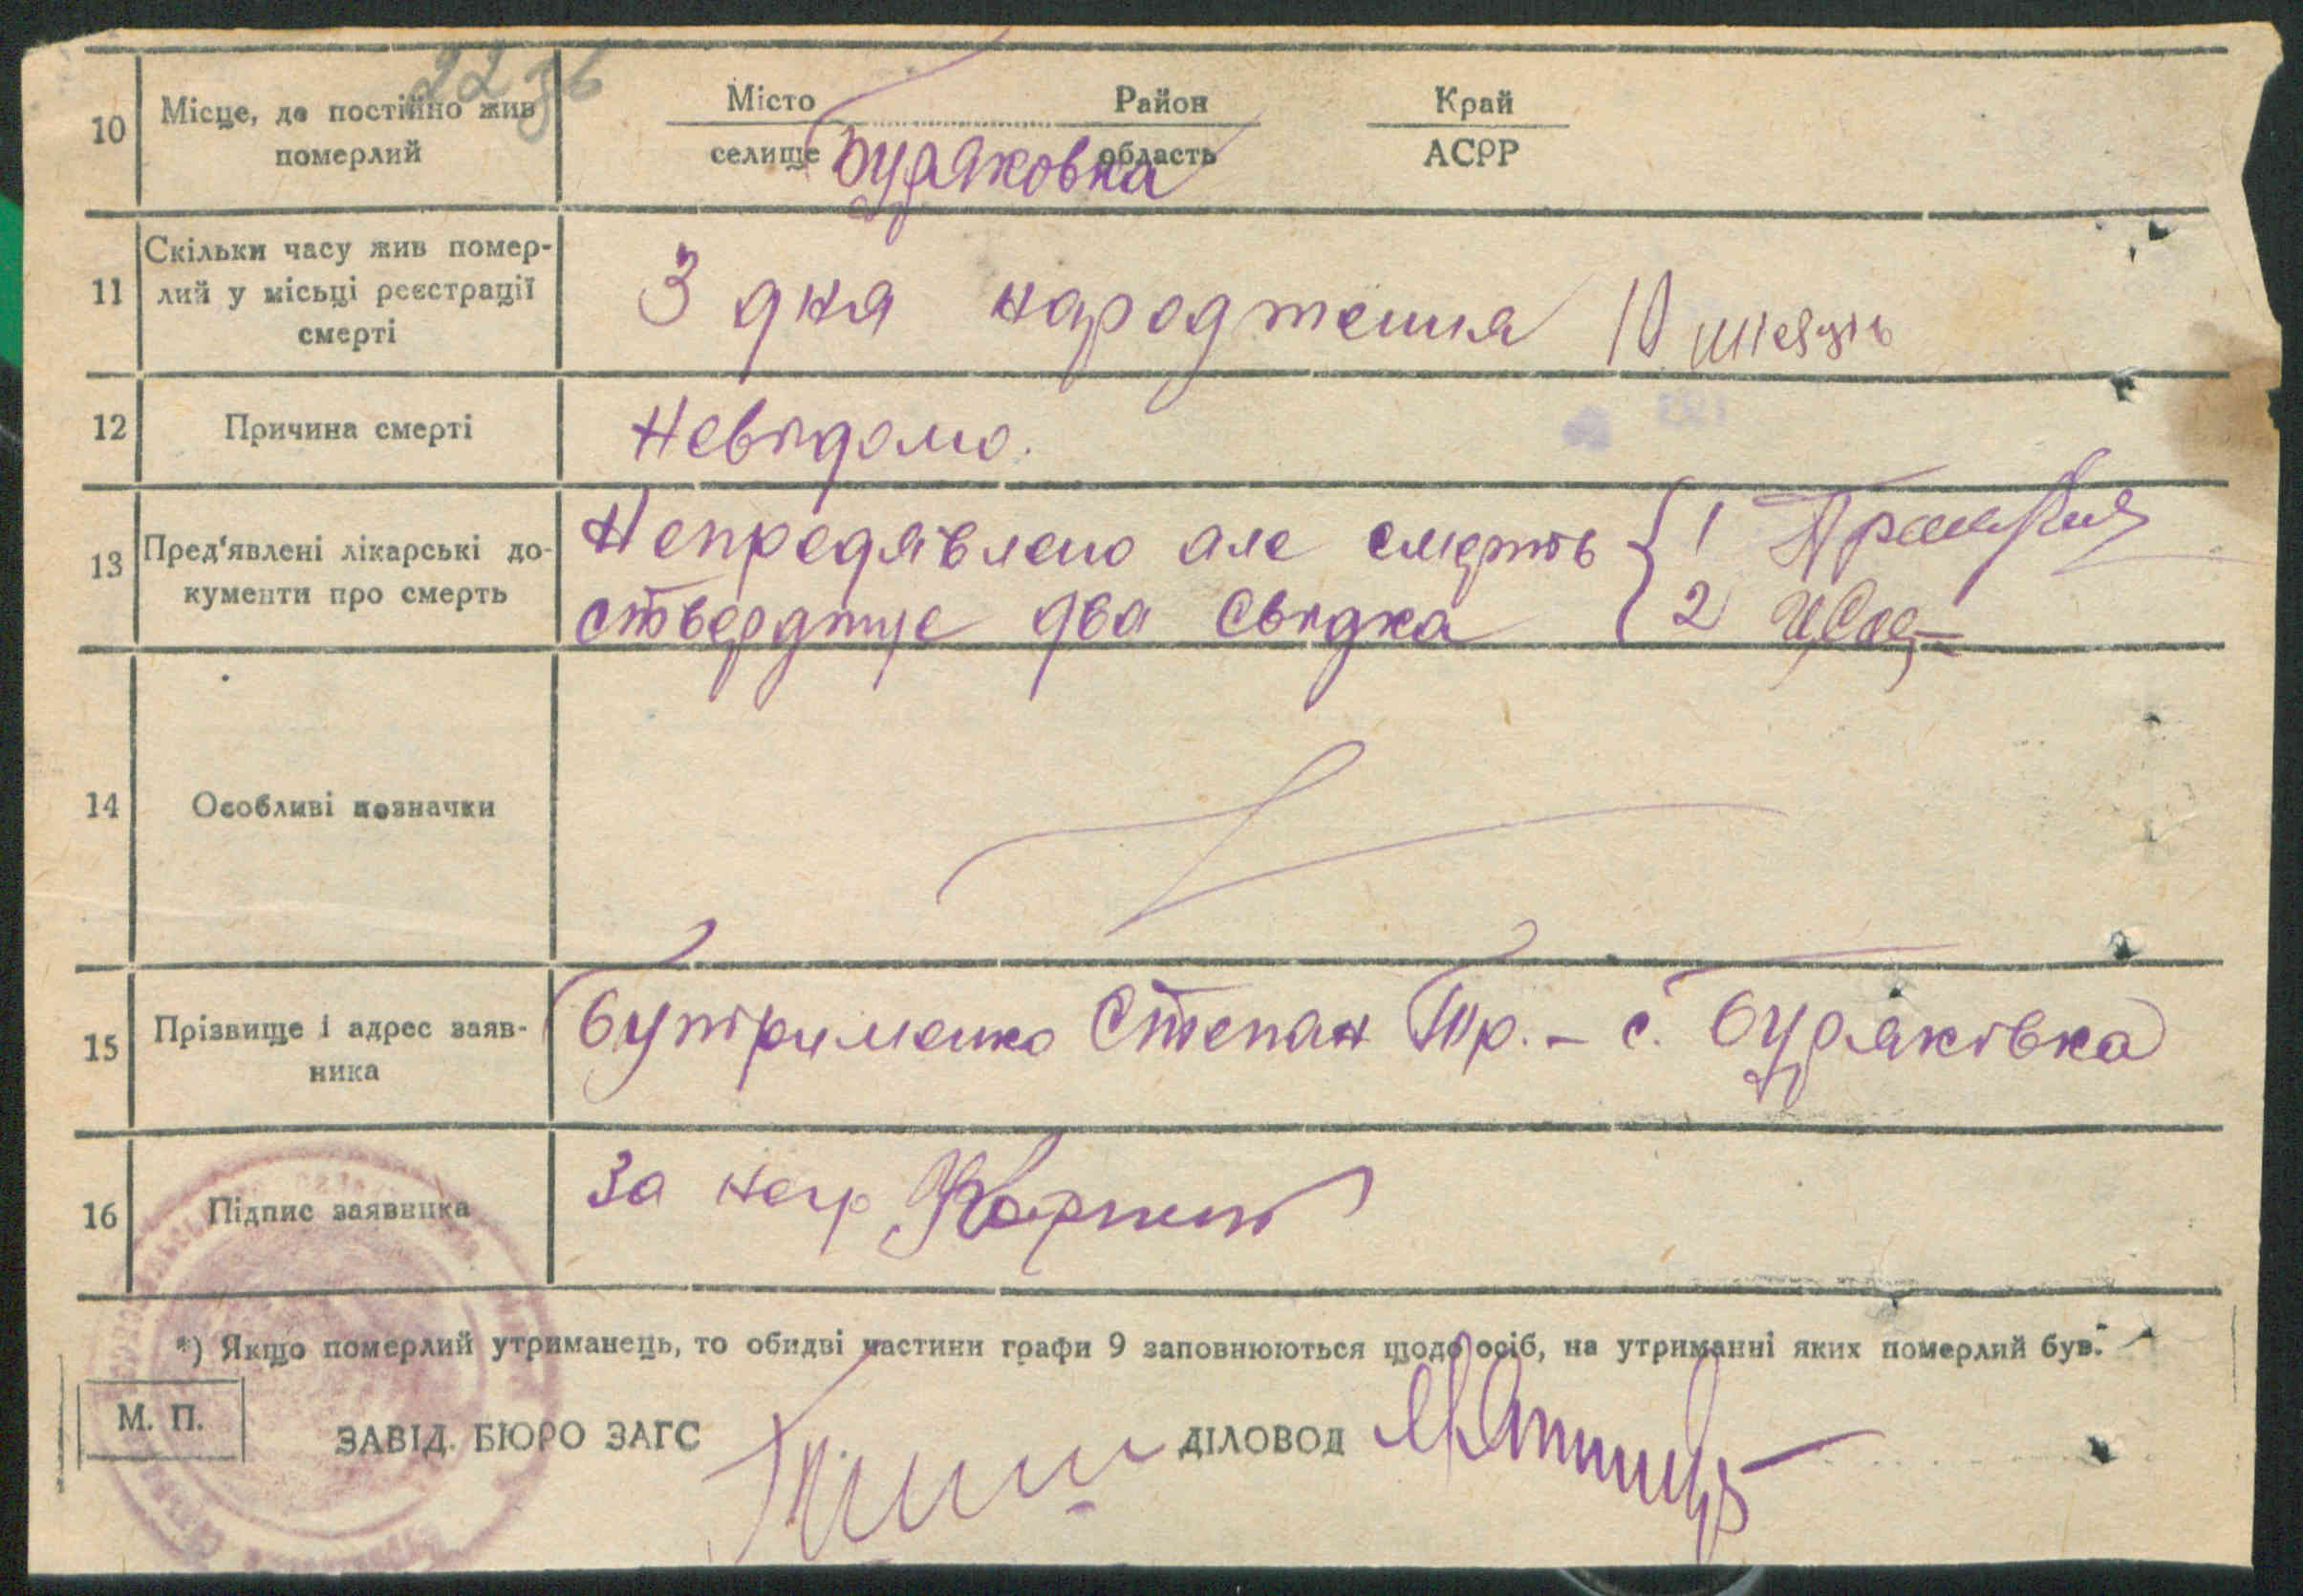 22 зв
10 Місце, де постійно жив померлий
Місто Район Край
селище Буряковка область АСРР
11 Скільки часу жив помер-
лий у місьці реєстрації
смерті
З дня народження 10 місяців
12 Причина смерті
Невідомо.
13 Пред'явлені лікарські до-
кументи про смерть
Непредявлено але смерть { 1
стверджує два свідка { 2
14 Особливі позначки
15 Прізвище і адрес заяв-
ника
Бутрименко Степан Тр. – с. Буряківка
16 Підпис заявника
За негр
*) Якщо померлий утриманець, то обидві частини графи 9 заповнюються щодо осіб, на утриманні яких померлий був.
М. П.
ЗАВІД. БЮРО ЗАГС ДІЛОВОД